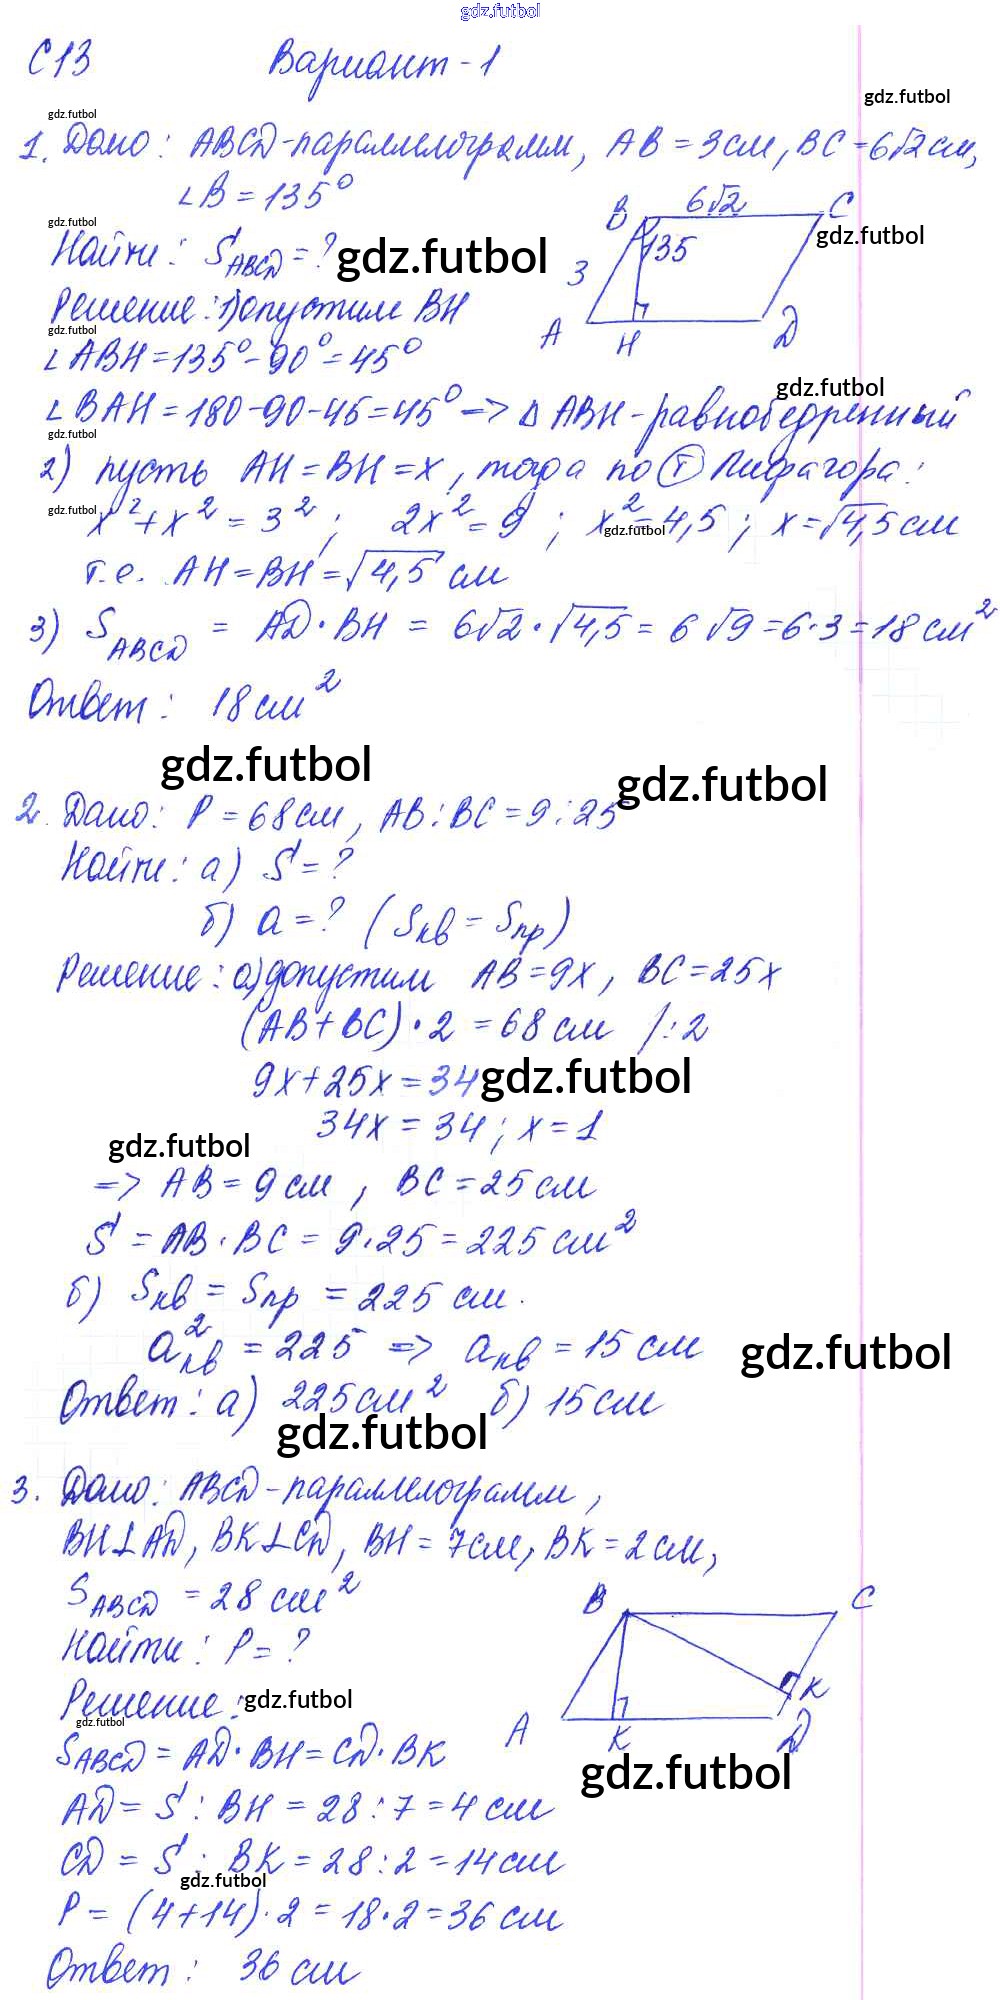 gdz.futbol
С13 Вариант-1
gdz.futbol
gdz.futbol
1. Дано: ABCD-параллелограмм, AB = 3см, BC = 6√2 см,
∠B = 135°
gdz.futbol
B 6√2 C
gdz.futbol
Найти: S_ABCD = ?
gdz.futbol
135
3
Решение: 1) опустим BH
A H D
gdz.futbol
∠ABH = 135° - 90° = 45°
gdz.futbol
∠BAH = 180 - 90 - 45 = 45° => Δ ABH - равнобедренный
gdz.futbol
2) пусть AH = BH = x, тогда по т Пифагора:
gdz.futbol
x² + x² = 3²; 2x² = 9; x² = 4,5; x = √4,5 см
gdz.futbol
т.е. AH = BH = √4,5 см
3) S_ABCD = AD · BH = 6√2 · √4,5 = 6√9 = 6·3 = 18 см²
Ответ: 18 см²
gdz.futbol
gdz.futbol
2. Дано: P = 68 см, AB : BC = 9 : 25
Найти: а) S = ?
б) a = ? (Sкв = Sпр)
Решение: а) допустим AB = 9x, BC = 25x
(AB + BC) · 2 = 68 см /:2
9x + 25x = 34
gdz.futbol
34x = 34; x = 1
gdz.futbol
=> AB = 9 см, BC = 25 см
S = AB · BC = 9 · 25 = 225 см²
б) Sкв = Sпр = 225 см.
a²кв = 225 => aкв = 15 см
gdz.futbol
Ответ: а) 225 см² б) 15 см
gdz.futbol
3. Дано: ABCD - параллелограмм,
BH ⊥ AD, BK ⊥ CD, BH = 7см, BK = 2 см,
S_ABCD = 28 см²
B C
Найти: P = ?
K
Решение:
gdz.futbol
gdz.futbol
A K D
S_ABCD = AD · BH = CD · BK
gdz.futbol
AD = S : BH = 28 : 7 = 4 см
CD = S : BK = 28 : 2 = 14 см
gdz.futbol
P = (4 + 14) · 2 = 18 · 2 = 36 см
Ответ: 36 см